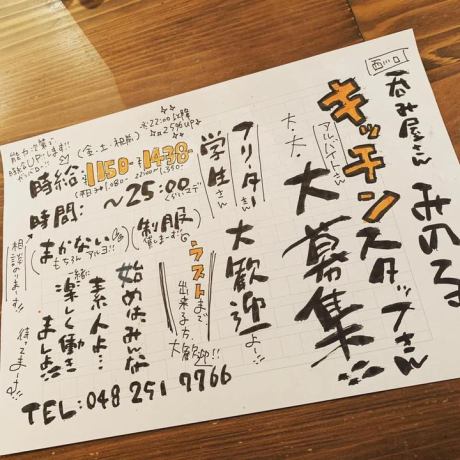 西川口
呑み屋さん みのる
キッチンスタッフさん
アルバイトさん
大、大、大募集!!
フリーターさん
学生さん
大歓迎よー!!
※22:00以降
25%up
(金・土・祝前)
時給:1150~1438円
時間: ~25:00
くらいまで
(まかない
もちろんアルヨ!!)
(制服
貸しまーす!!)
ラストまで
出来る方、
大歓迎!!
始めはみんな
素人よ…
一緒に
楽しく働き
ましょ!!
相談のりまーす!!
待ってまーす!!
TEL:048 251 7766